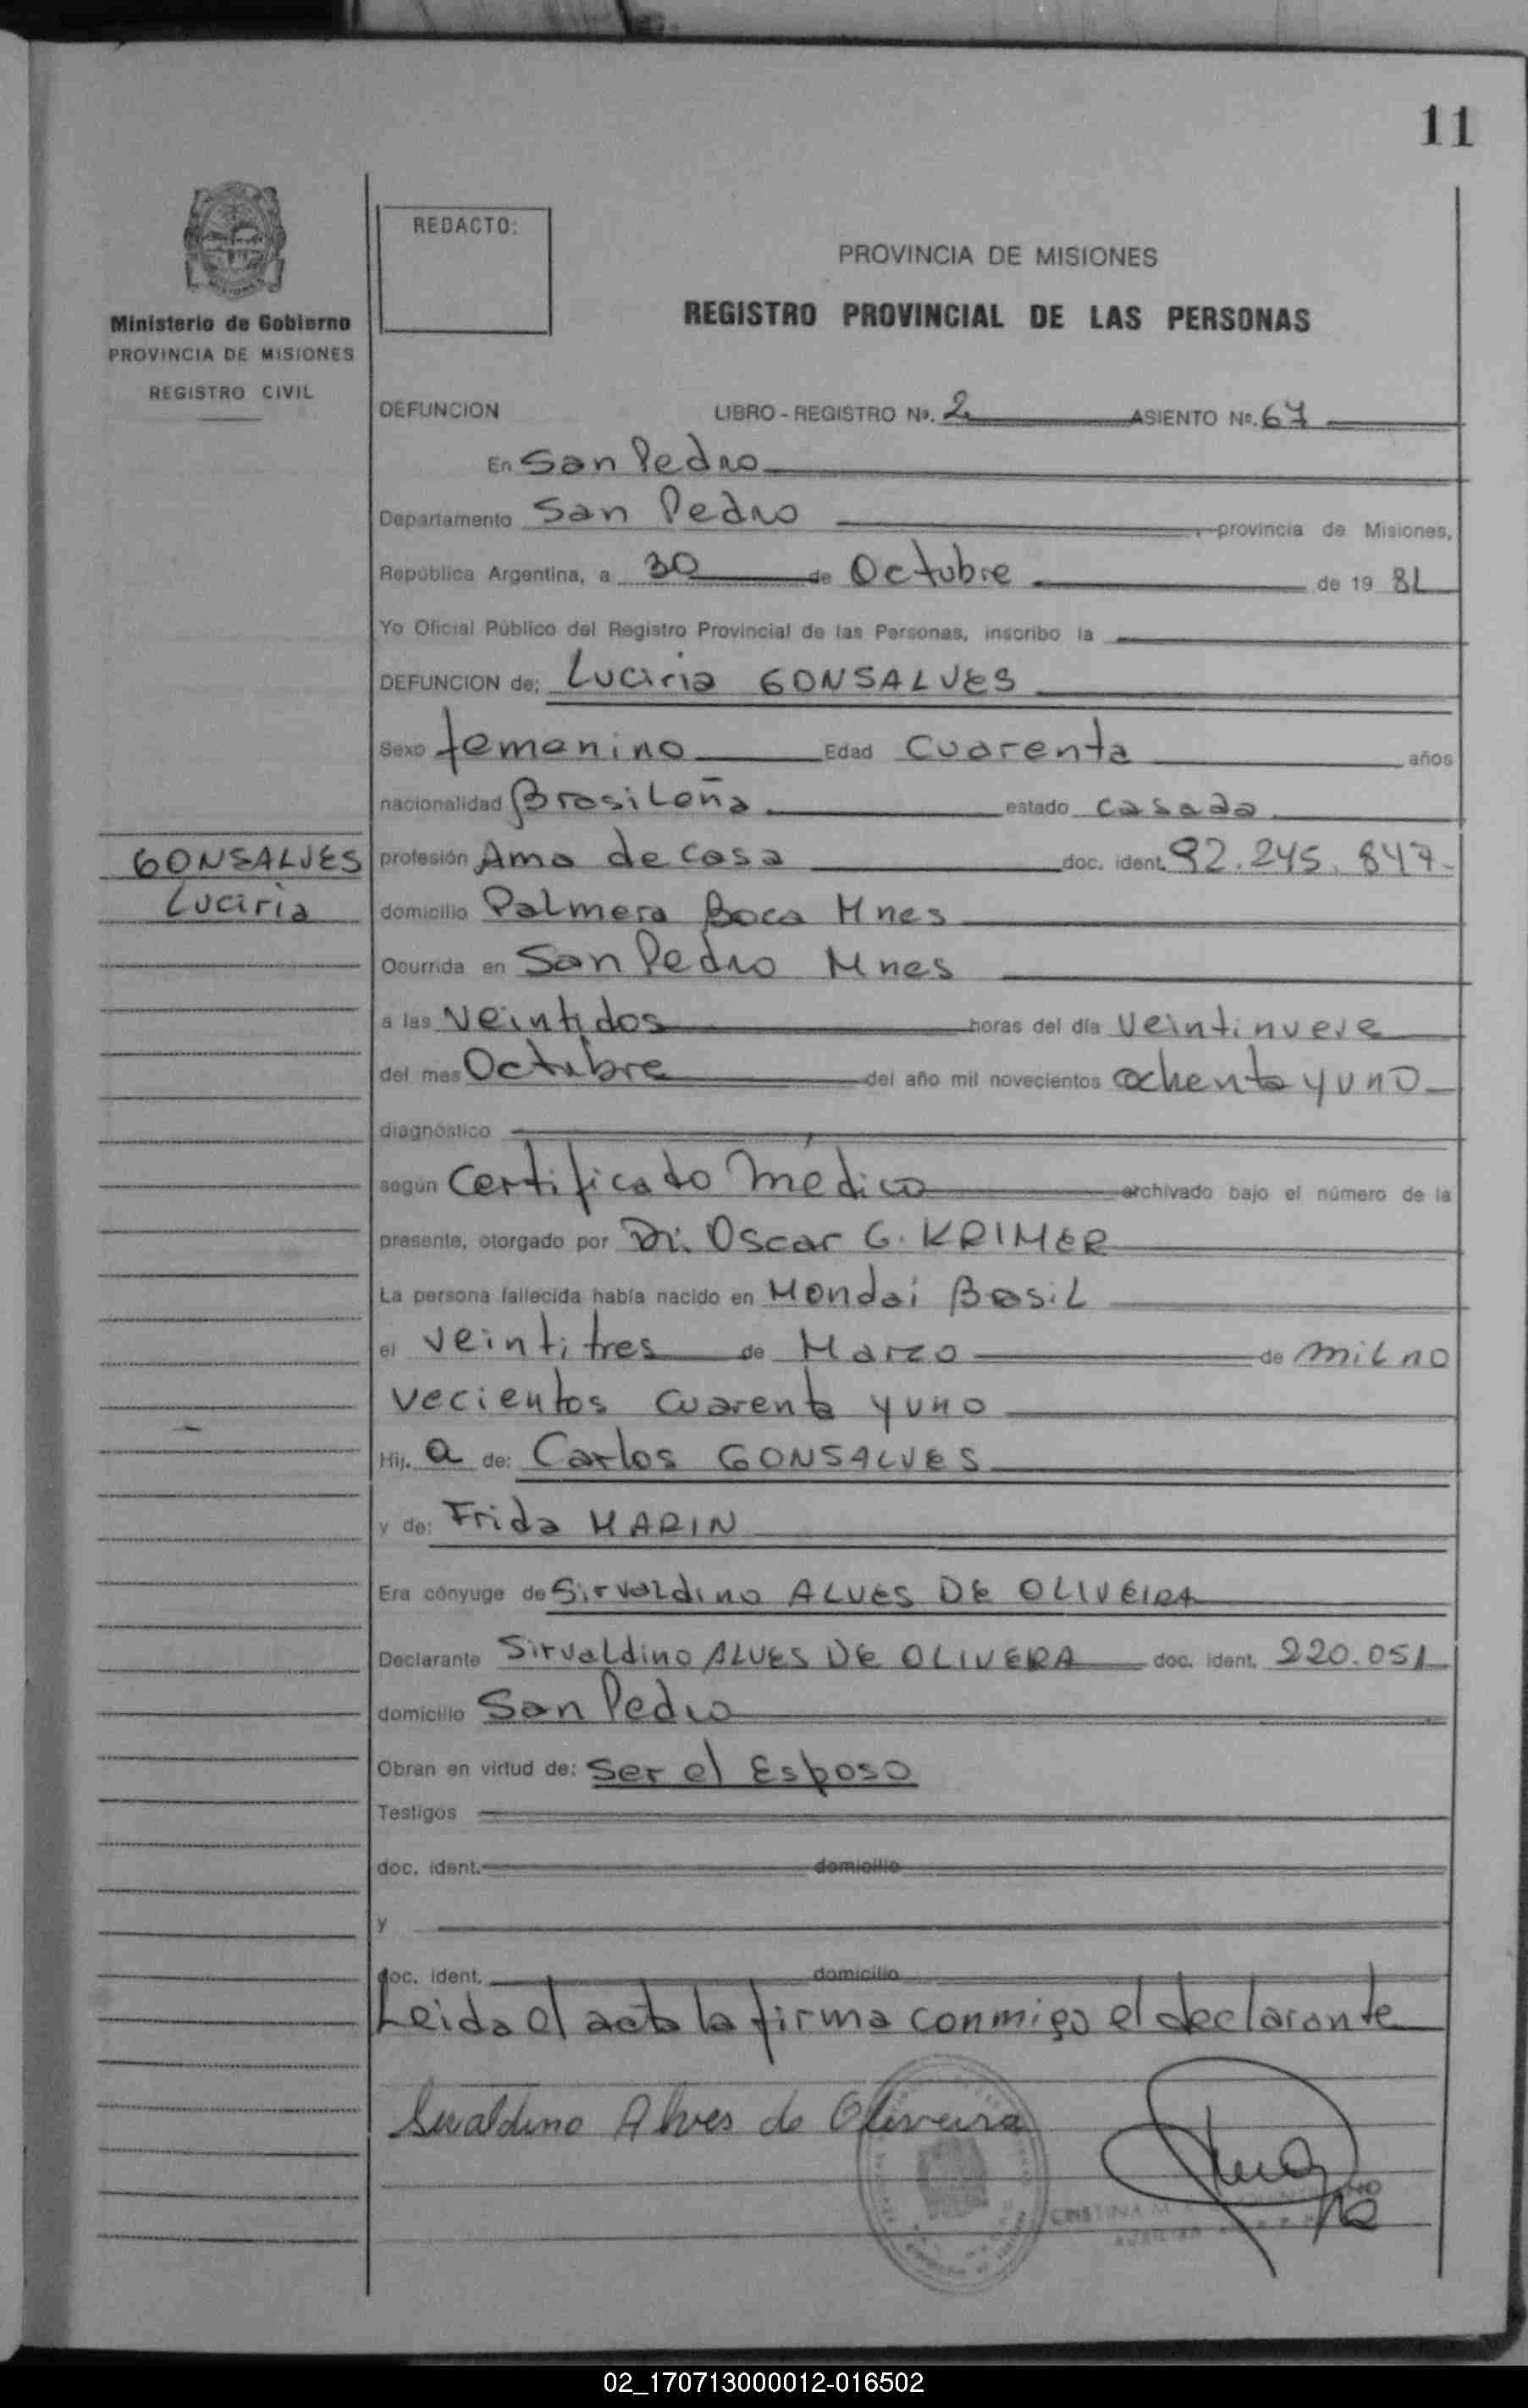 11
REDACTO:
PROVINCIA DE MISIONES
REGISTRO PROVINCIAL DE LAS PERSONAS
Ministerio de Gobierno
PROVINCIA DE MISIONES
REGISTRO CIVIL
DEFUNCION LIBRO - REGISTRO Nº. 2 ASIENTO Nº. 67
En San Pedro
Departamento San Pedro , provincia de Misiones,
República Argentina, a 30 de Octubre de 19 81
Yo Oficial Público del Registro Provincial de las Personas, inscribo la
DEFUNCION de; Luciria GONSALVES
Sexo femenino Edad Cuarenta años
nacionalidad Brasileña estado casada
GONSALVES
Luciria
profesión Ama de casa doc. ident. 92.245.847
domicilio Palmera Boca Mnes
Ocurrida en San Pedro Mnes
a las veintidos horas del día veintinueve
del mes Octubre del año mil novecientos ochenta y uno
diagnóstico
según Certificado médico archivado bajo el número de la
presente, otorgado por Dr. Oscar G. KRIMER
La persona fallecida había nacido en Mondai Brasil
el veintitres de Marzo de mil no
vecientos cuarenta y uno
Hij. a de: Carlos GONSALVES
y de: Frida MARIN
Era cónyuge de Sirvaldino ALVES DE OLIVEIRA
Declarante Sirvaldino ALVES DE OLIVERA doc. ident. 220.051
domicilio San Pedro
Obran en virtud de: Ser el Esposo
Testigos
doc. ident. domicilio
y
doc. ident. domicilio
Leida el acta la firma conmigo el declarante
Sirvaldino Alves de Oliveira
CRISTINA M
AUXILIAR
02_170713000012-016502